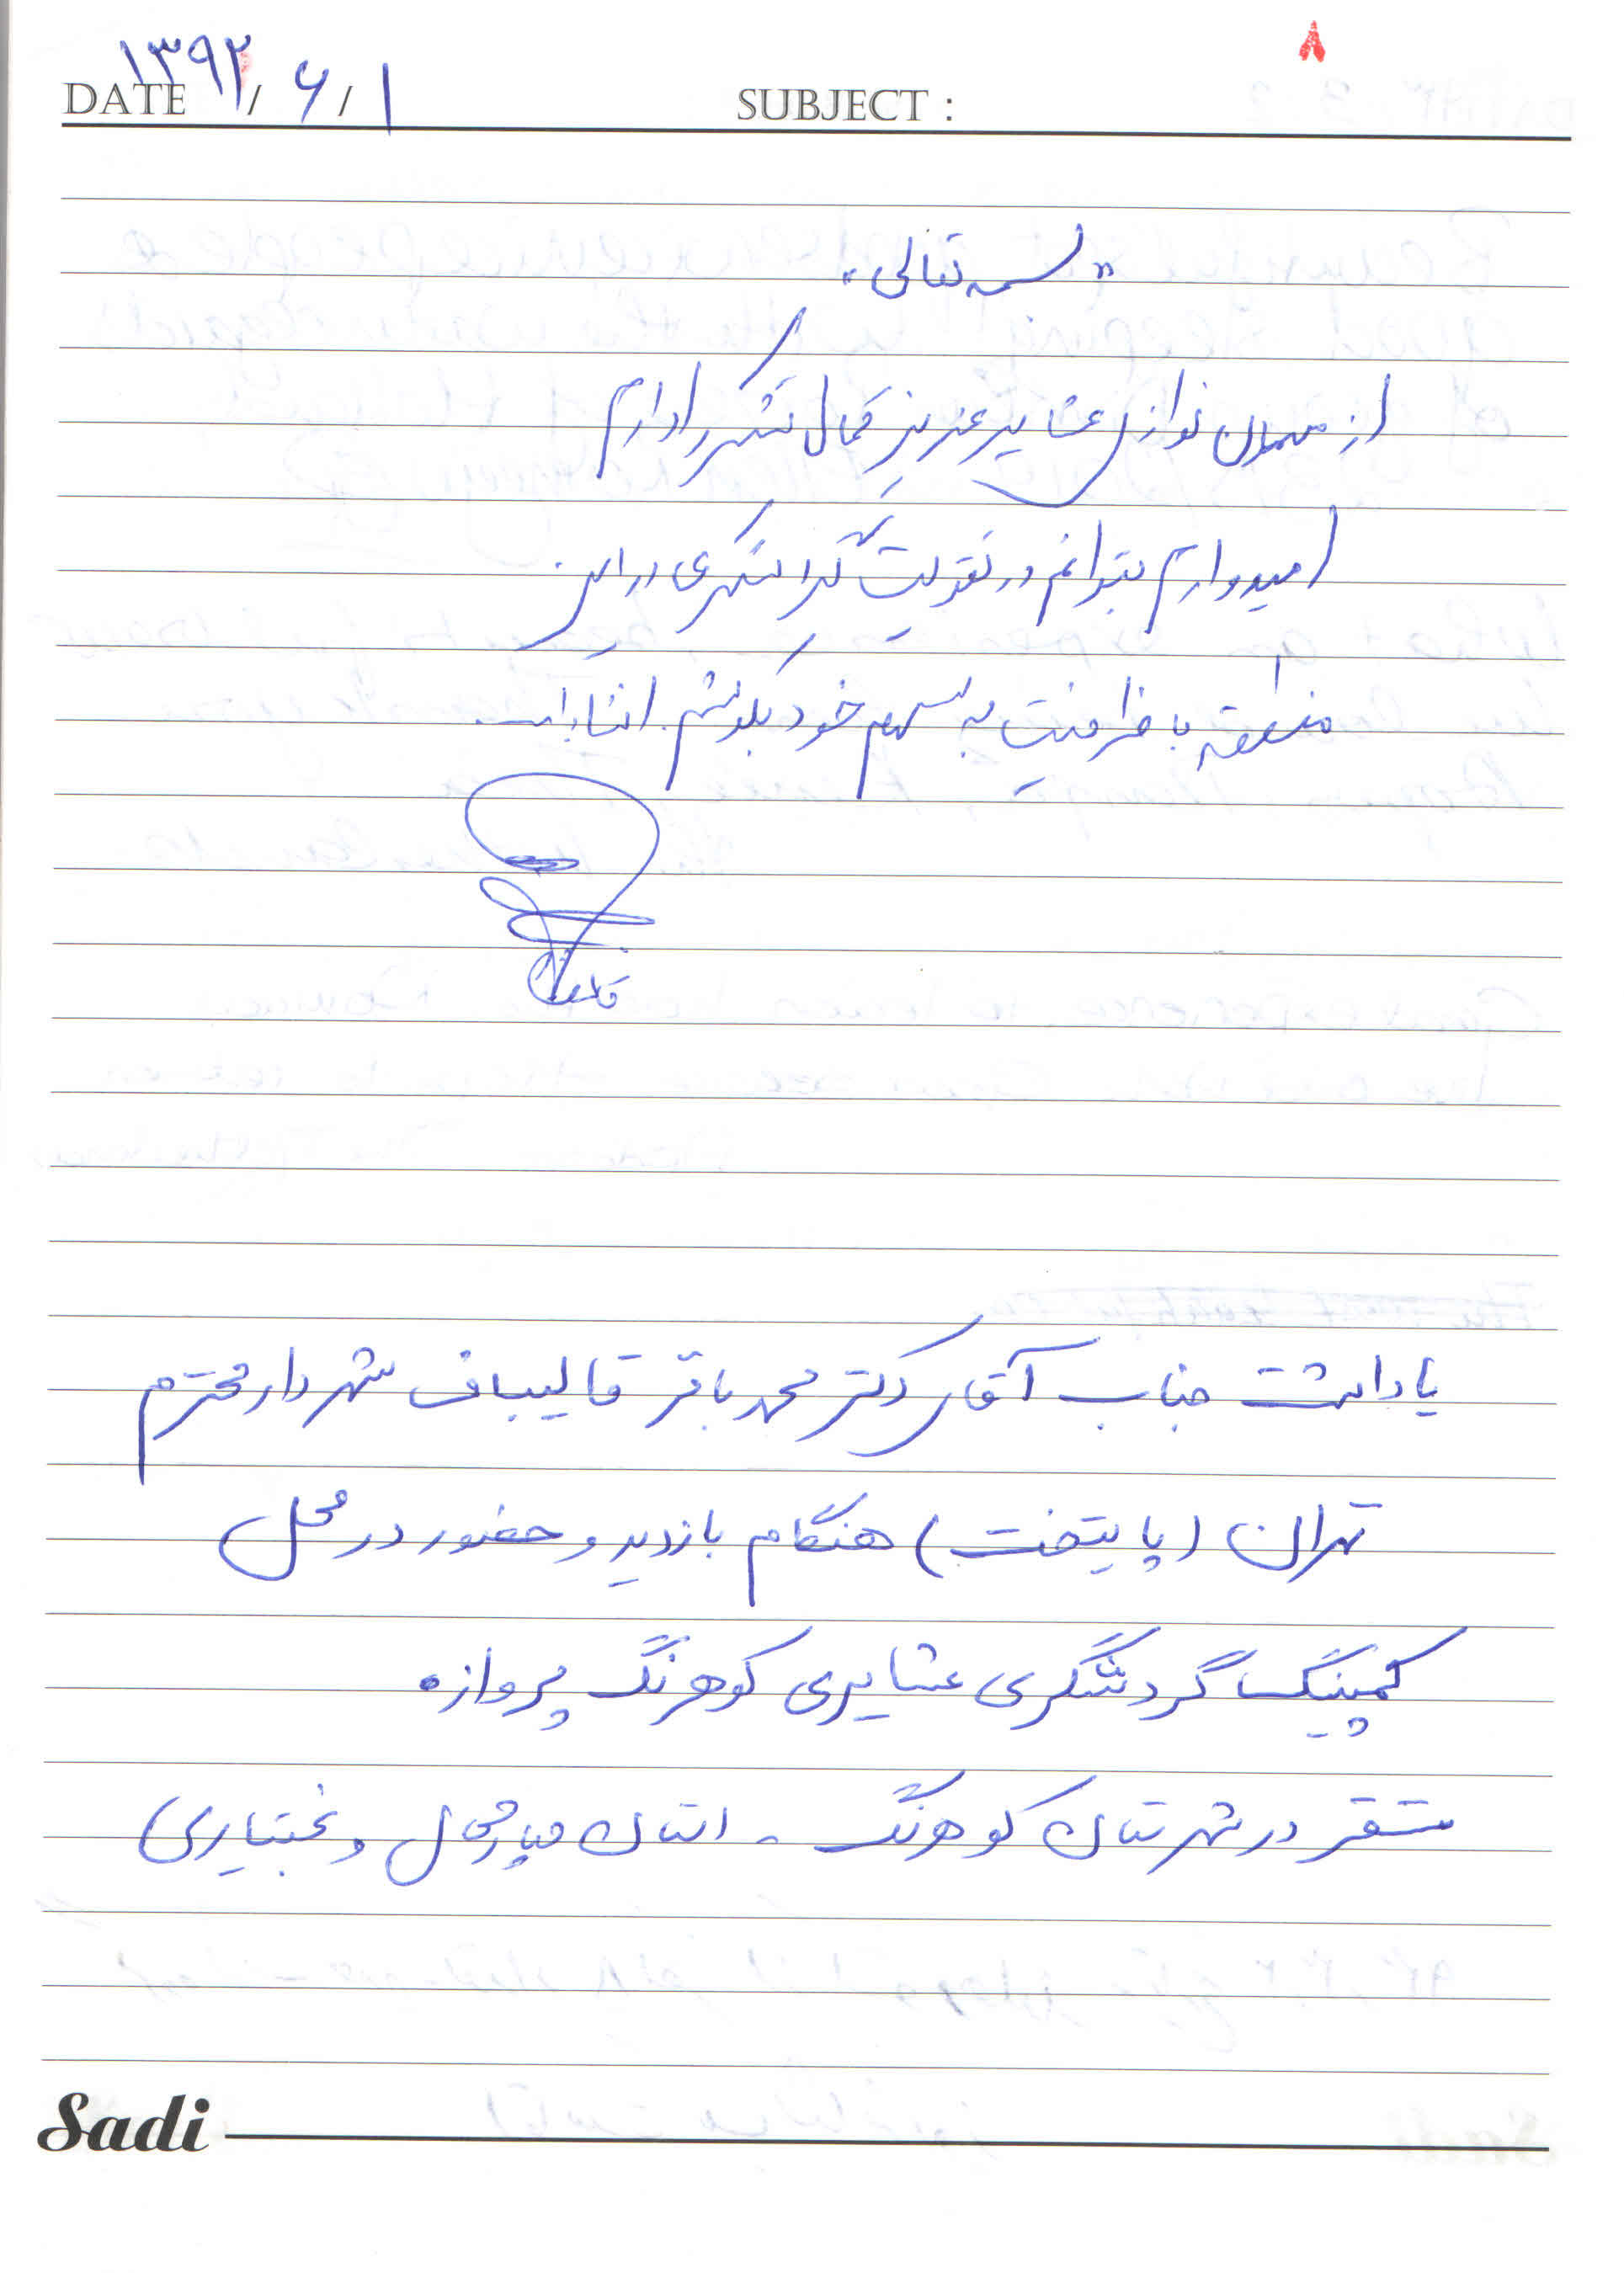 ۸
DATE ۱۳۹۲/ ۶/ ۱ SUBJECT :
"بسمه تعالی"
از مهمان نوازی عشایر عزیز کمال تشکر را دارم
امیدوارم بتوانم در تقویت گردشگری در این
منطقه با ظرفیت به سهم خود بکوشم. انشاءالله
یاداشت جناب آقای دکتر محمد باقر قالیباف شهردار محترم
تهران (پایتخت) هنگام بازدید و حضور در محل
کمپینگ گردشگری عشایری کوهرنگ پروازه
مستقر در شهرستان کوهرنگ - استان چهارمحال و بختیاری)
Sadi